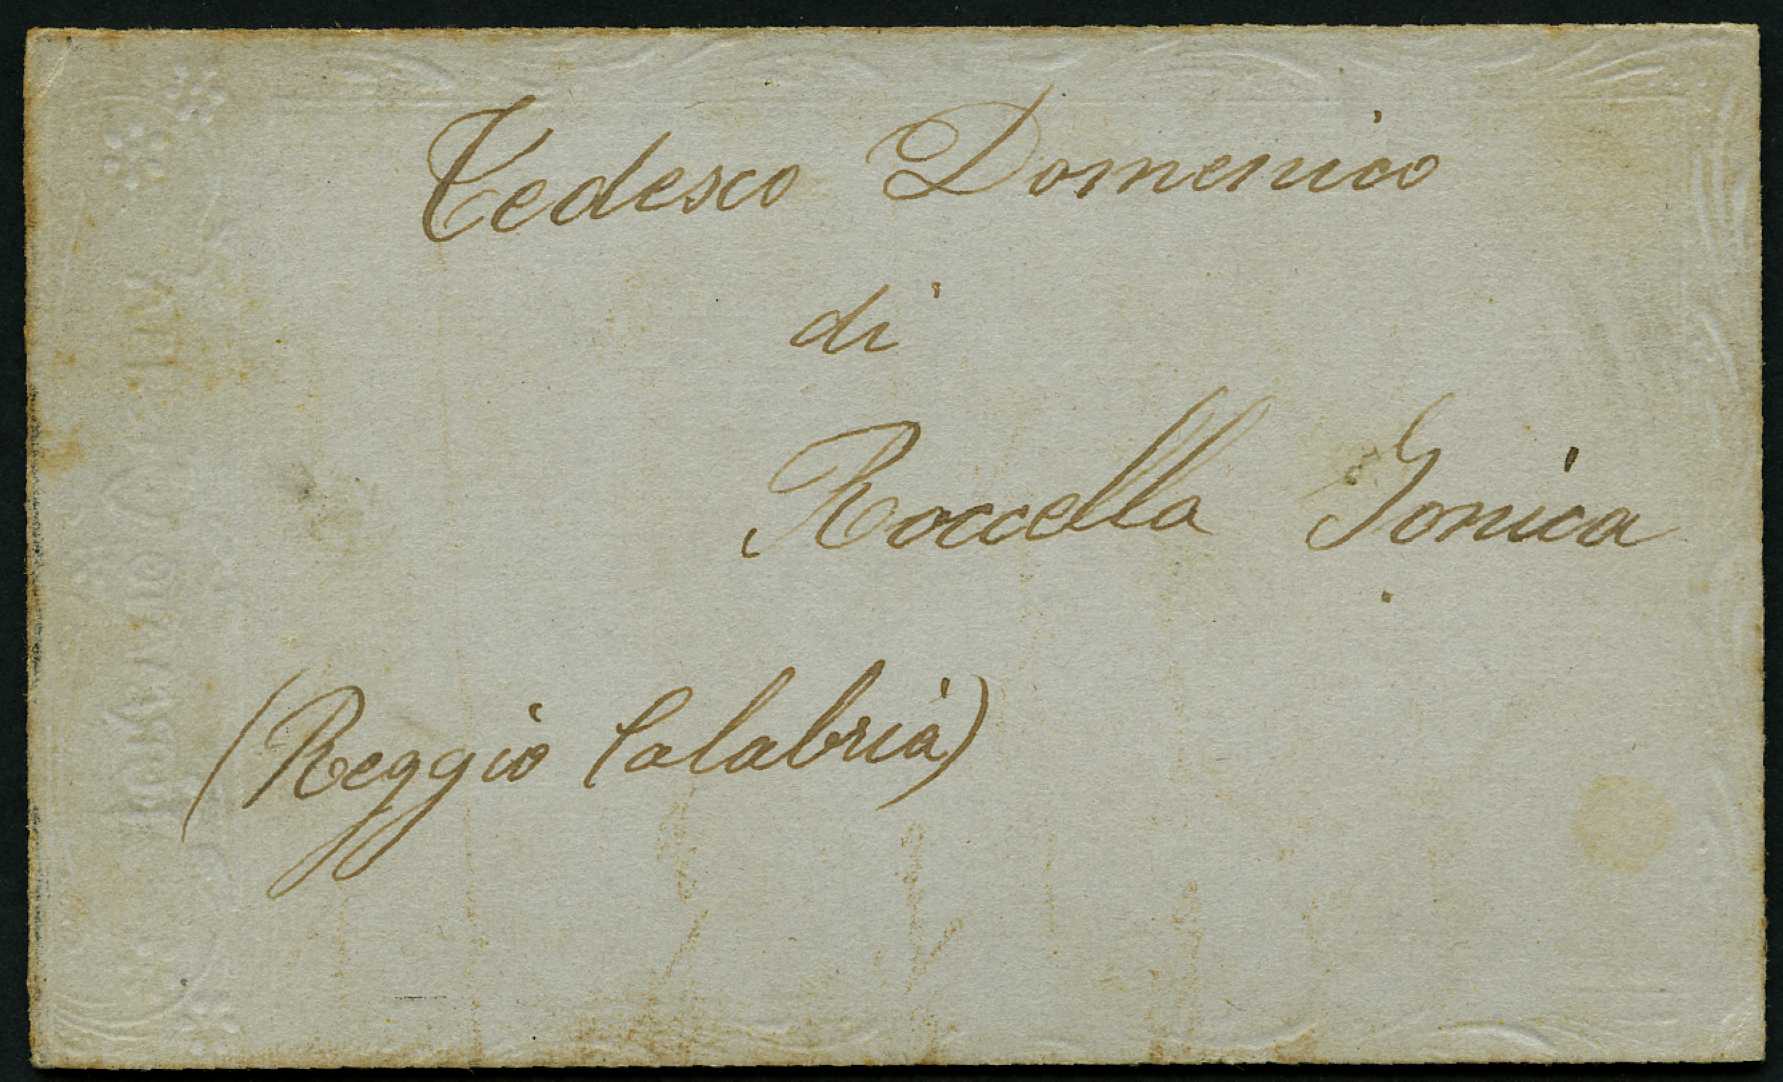 Tedesco Domenico
di
Roccella Jonica
(Reggio Calabria)